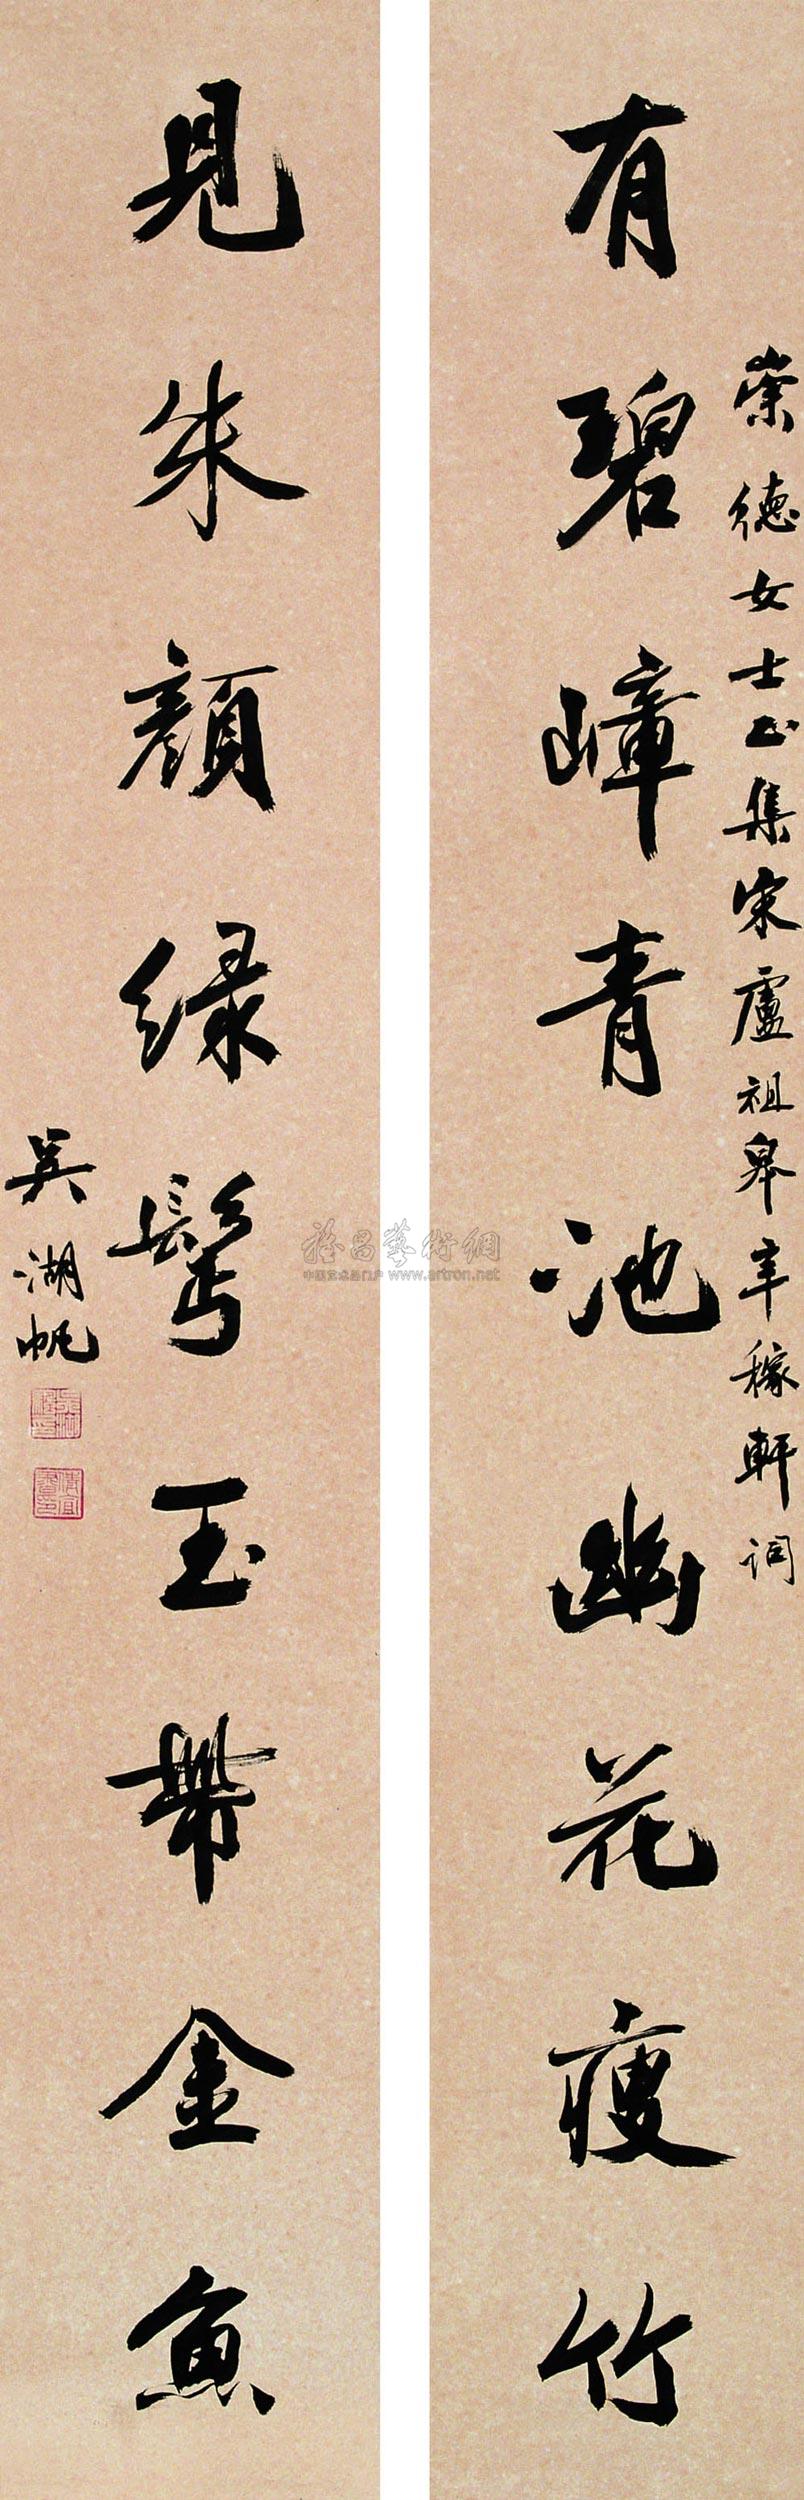 崇德女士正集宋盧祖皋辛稼軒詞
有碧嶂青池幽花瘦竹
見朱顔緑鬢玉帶金魚
吳湖帆
雅昌藝術網
中国艺术品门户 www.artron.net